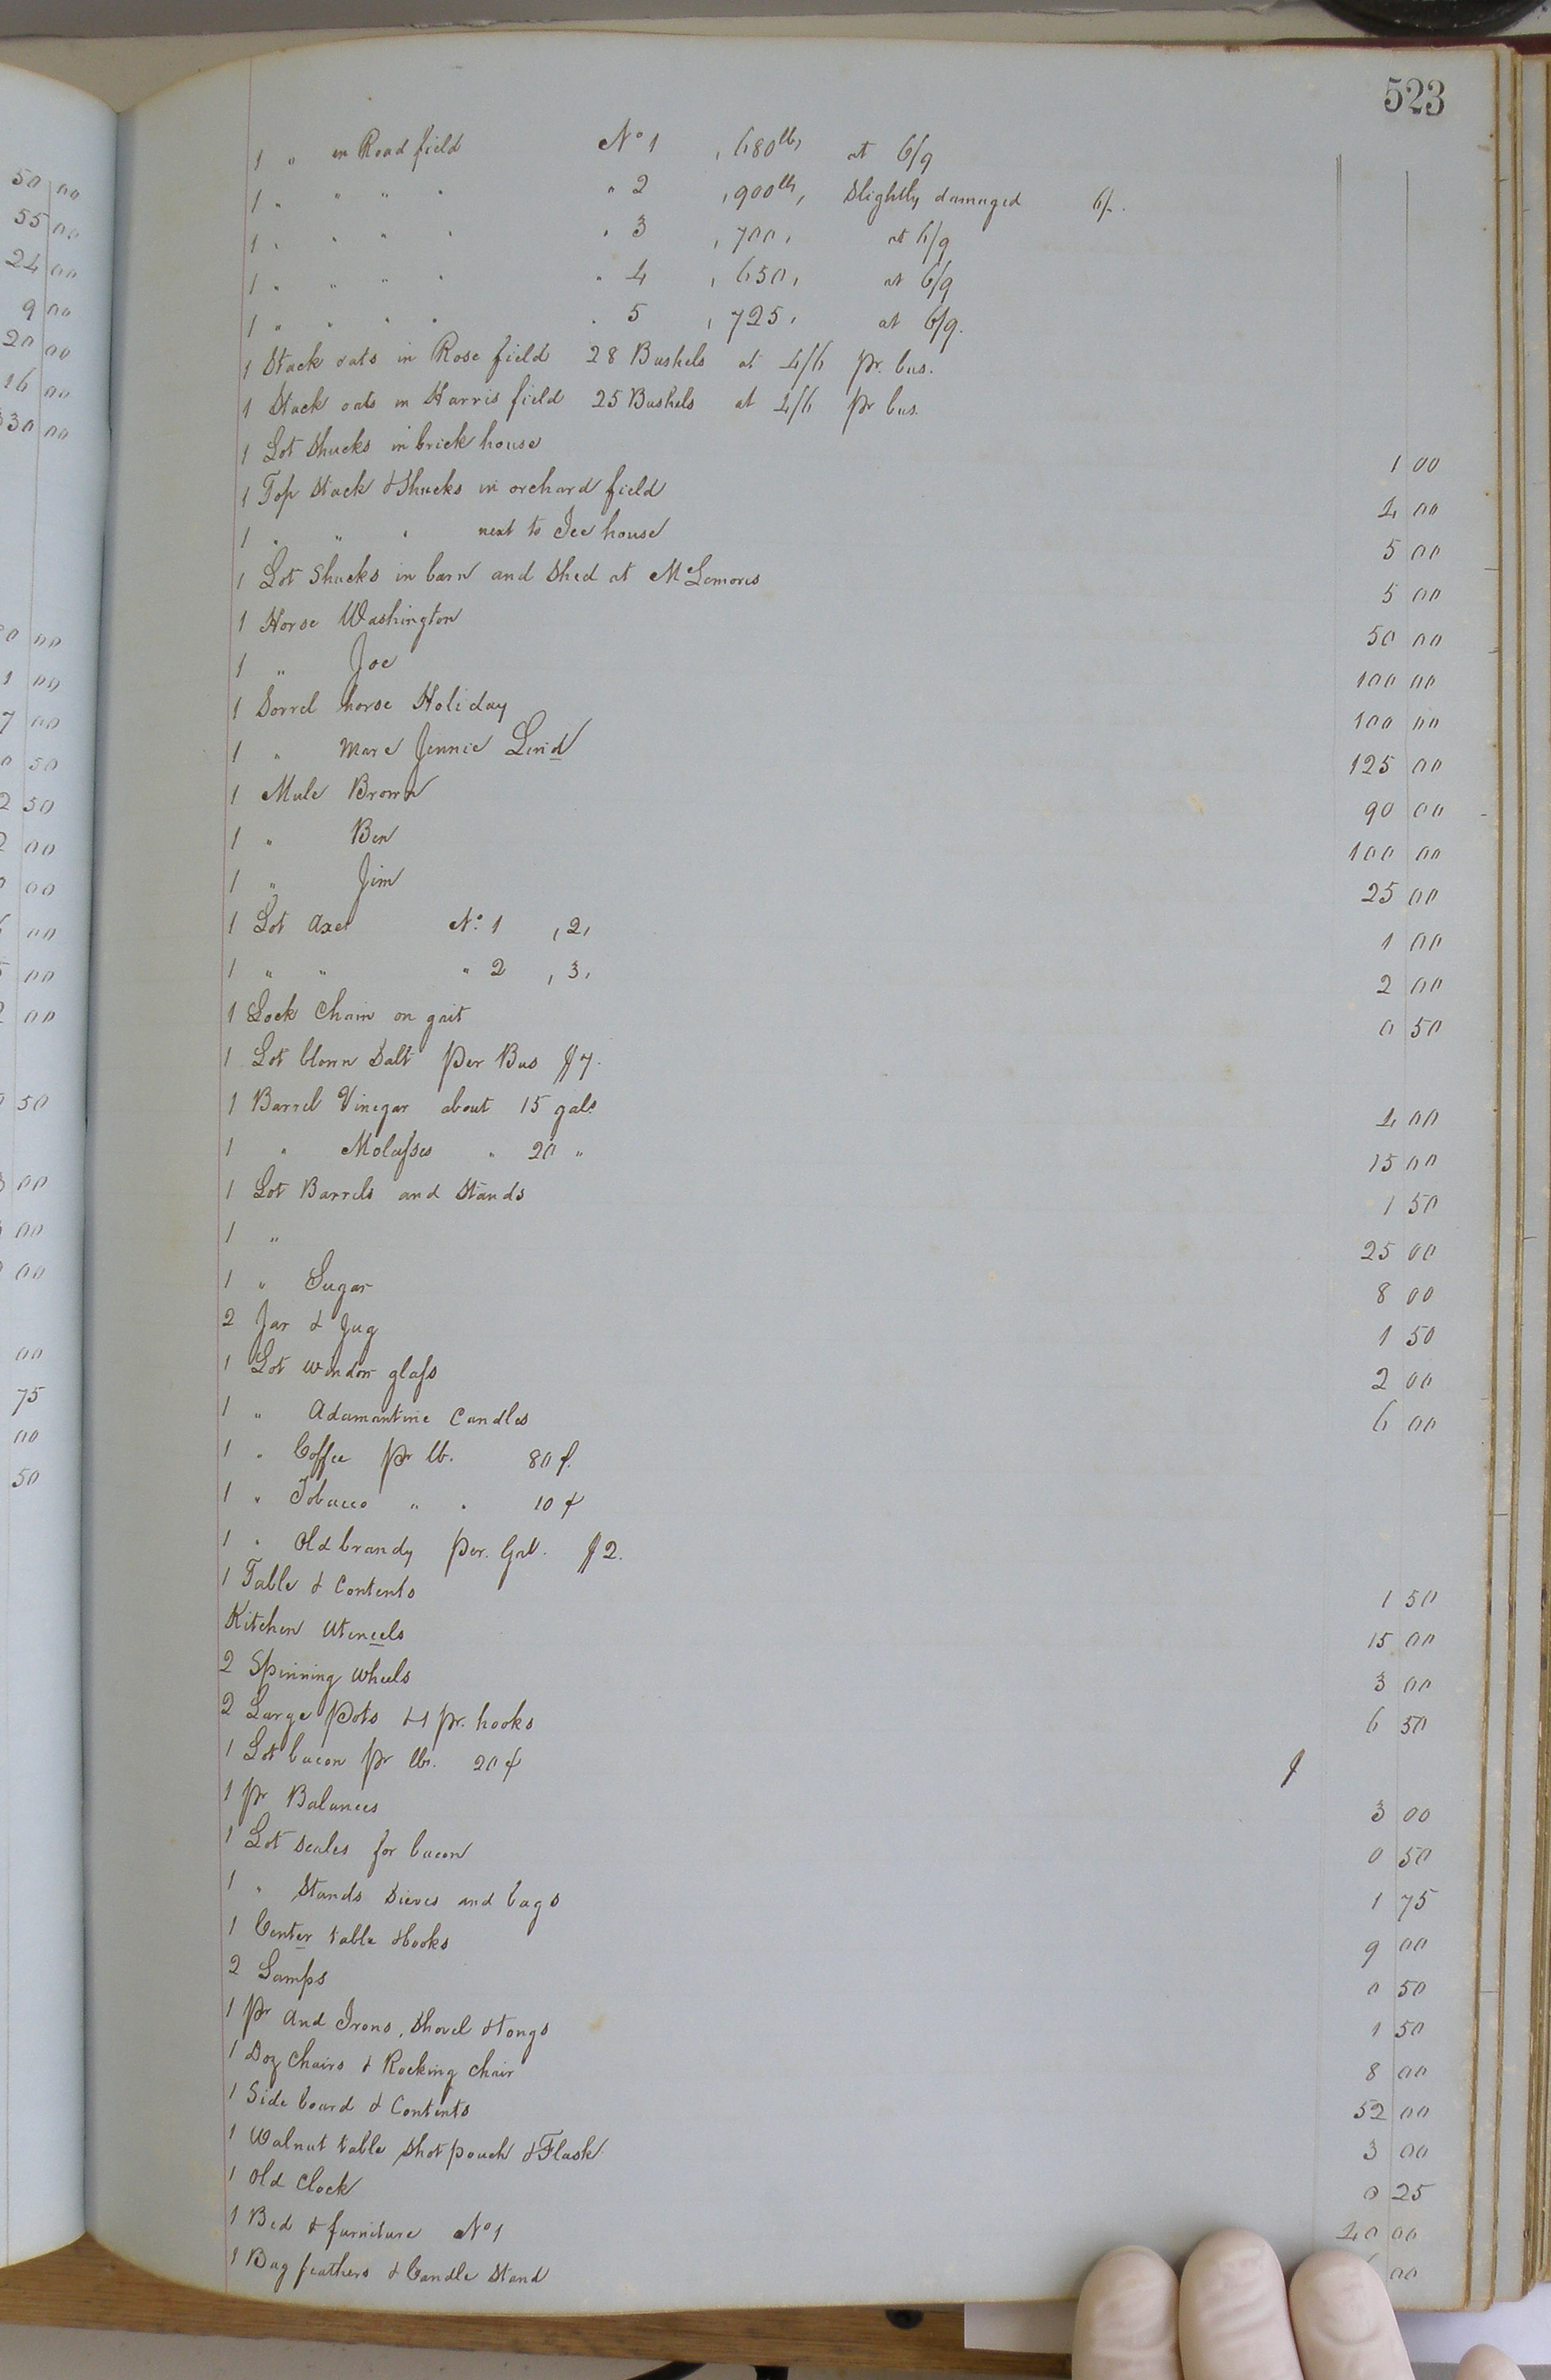 523
1 " in Road field No 1 , 680 lbs, at 6/9
1 " " " " " 2 , 900 lb, Slightly damaged 6/-.
1 " " " " " 3 , 700, at 6/9
1 " " " " " 4 , 650, at 6/9
1 " " " " " 5 , 725, at 6/9.
1 Stack oats in Rose field 28 Bushels at 4/6 pr. bus.
1 Stack oats in Harris field 25 Bushels at 4/6 pr bus.
1 Lot Shucks in brick house 1 00
1 Top Stack & Shucks in orchard field 4 00
1 " " " next to Ice house 5 00
1 Lot Shucks in barn and Shed at McLemores 5 00
1 Horse Washington 50 00
1 " Joe 100 00
1 Sorrel horse Holiday 100 00
1 " Mare Jennie Lind 125 00
1 Mule Brown 90 00
1 " Ben 100 00
1 " Jim 25 00
1 Lot Axes No. 1 , 2, 1 00
1 " " " 2 , 3, 2 00
1 Lock Chain on gait 0 50
1 Lot blown Salt per Bus $7.
1 Barrel Vinegar about 15 gals 4 00
1 " Molasses " 20 " 15 00
1 Lot Barrels and Stands 1 50
1 " 25 00
1 " Sugar 8 00
2 Jar & Jug 1 50
1 Lot window glass 2 00
1 " Adamantine Candles 6 00
1 " Coffee pr lb. 80 ¢.
1 " Tobacco " " 10 ¢
1 " Old brandy per. Gal. $2.
1 Table & Contents 1 50
Kitchen Utencels 15 00
2 Spinning Wheels 3 00
2 Large Pots & 1 pr. hooks 6 50
1 Lot bacon pr lb. 20 ¢
1 pr Balances 3 00
1 Lot scales for bacon 0 50
1 " Stands Sieves and bags 1 75
1 Center table & books 9 00
2 Lamps 0 50
1 pr And Irons, Shovel & tongs 1 50
1 Doz Chairs & Rocking Chair 8 00
1 Side board & Contents 52 00
1 Walnut table Shot pouch & Flask 3 00
1 Old Clock 0 25
1 Bed & furniture No 1 40 00
1 Bag feathers & Candle Stand 00